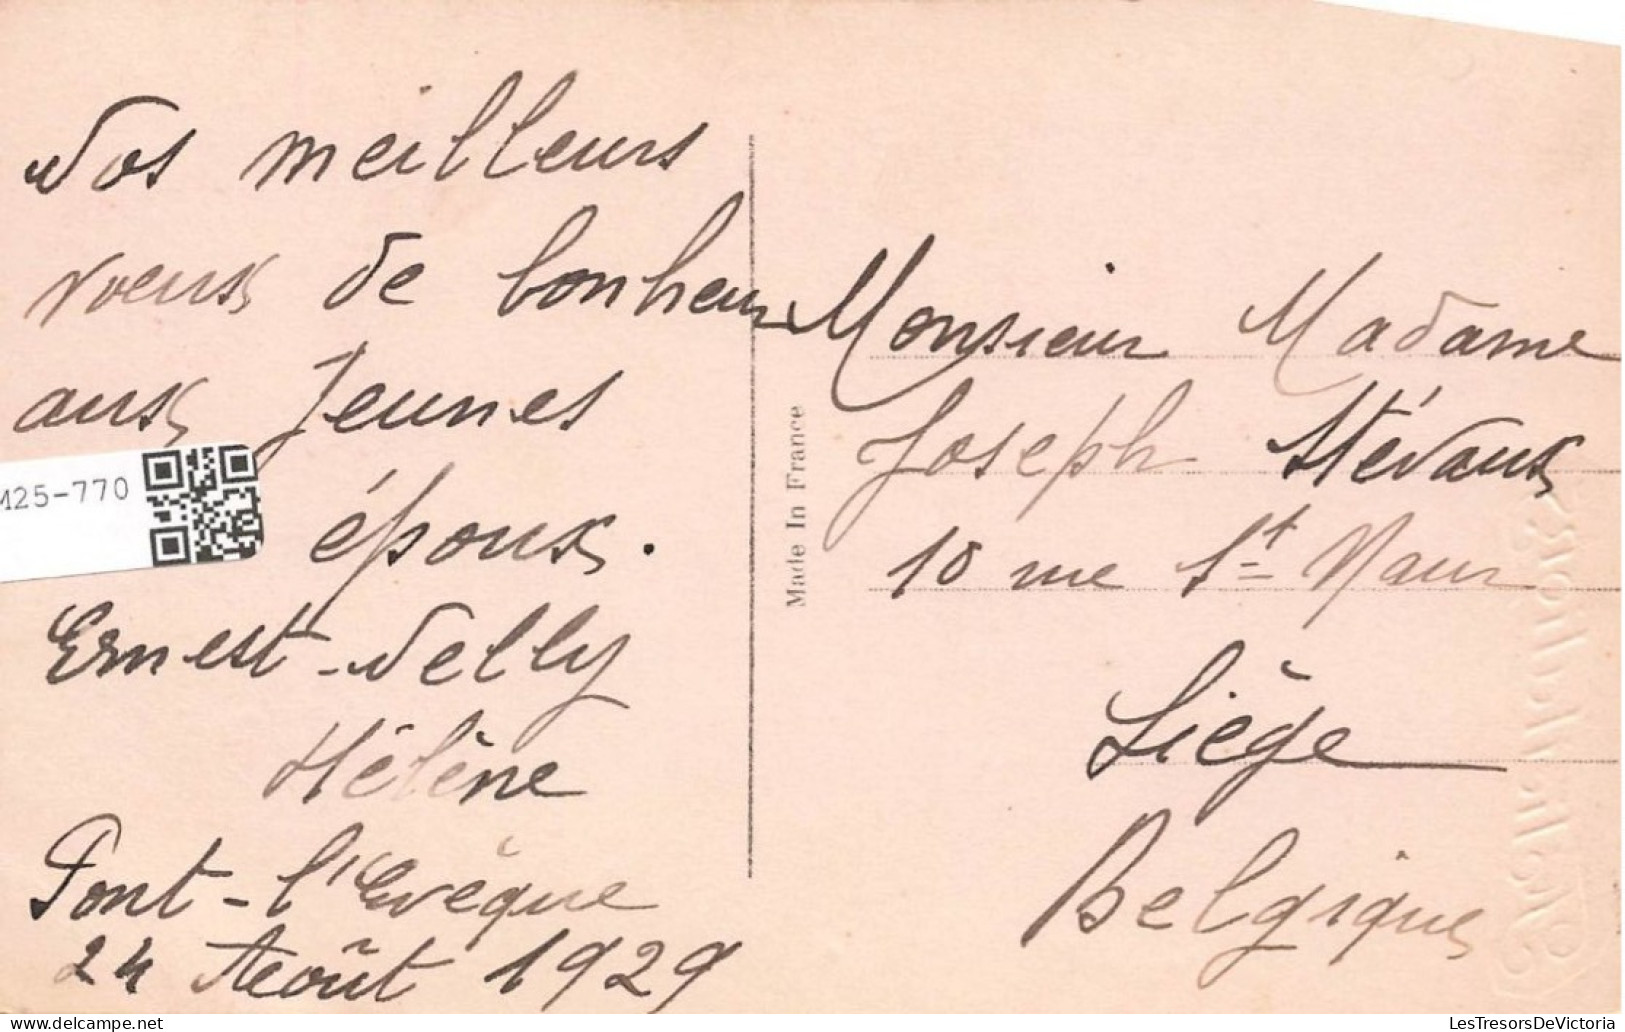 Nos meilleurs
voeux de bonheur
aux Jeunes
époux.
Ernest-Nelly
Hélène
Pont-l'Evêque
24 Août 1929
Made In France
Monsieur Madame
Joseph Stévaux
10 rue St Maur
Liège
Belgique
M25-770
LesTresorsDeVictoria